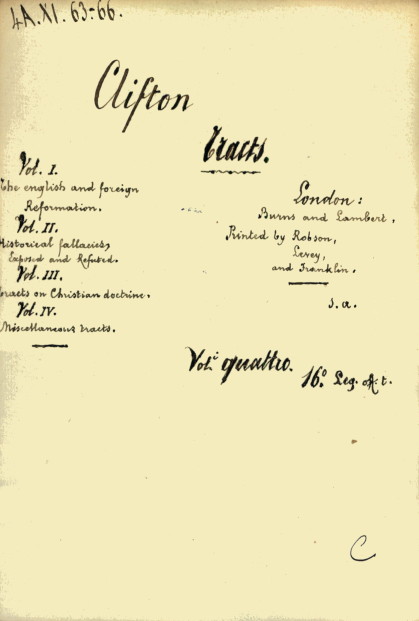 4A.XI. 63-66.
Clifton
Tracts.
Vol. I.
The english and foreign
Reformation.
Vol. II.
Historical fallacies,
Exposed and Refuted.
Vol. III.
Tracts on Christian doctrine.
Vol. IV.
Miscellaneous tracts.
London:
Burns and Lambert.
Printed by Robson,
Levey,
and Franklin.
s.a.
Vol.i quattro.
16.º Leg.
C